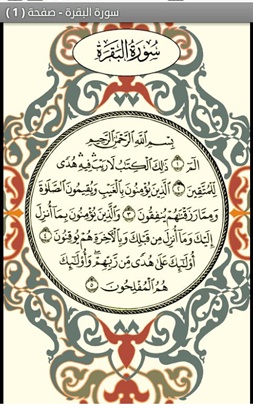 سورة البقرة - صفحة ( 1 )
سُورَةُ البَقَرَةِ
بِسْمِ اللَّهِ الرَّحْمَٰنِ الرَّحِيمِ
الٓمٓ ١ ذَٰلِكَ ٱلْكِتَٰبُ لَا رَيْبَ ۛ فِيهِ ۛ هُدًى
لِّلْمُتَّقِينَ ٢ ٱلَّذِينَ يُؤْمِنُونَ بِٱلْغَيْبِ وَيُقِيمُونَ ٱلصَّلَوٰةَ
وَمِمَّا رَزَقْنَٰهُمْ يُنفِقُونَ ٣ وَٱلَّذِينَ يُؤْمِنُونَ بِمَآ أُنزِلَ
إِلَيْكَ وَمَآ أُنزِلَ مِن قَبْلِكَ وَبِٱلْءَاخِرَةِ هُمْ يُوقِنُونَ ٤
أُو۟لَٰٓئِكَ عَلَىٰ هُدًى مِّن رَّبِّهِمْ ۖ وَأُو۟لَٰٓئِكَ
هُمُ ٱلْمُفْلِحُونَ ٥